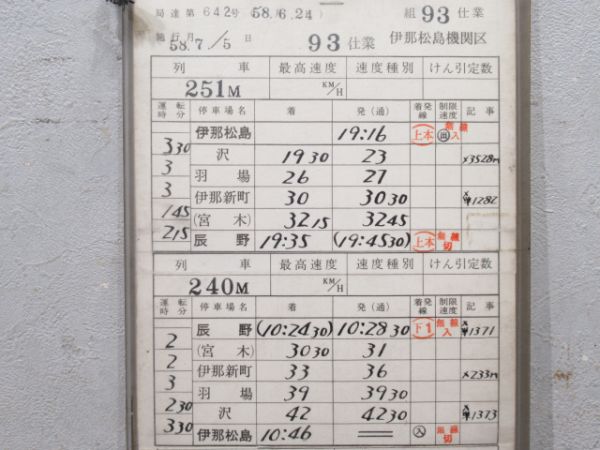 局達第 642号(58.6.24) 組 93 仕業
施行月 58.7./5 日 93 仕業 伊那松島機関区
列車 最高速度 速度種別 けん引定数
251M KM/H
運転時分 停車場名 着 発(通) 着発線 制限速度 記事
伊那松島 19:16 上本 出 無線入
330 沢 1930 23 ×3528m
3 羽場 26 27
3 伊那新町 30 3030 1282
145 (宮木) 3215 3245
215 辰野 19:35 (19:4530) 上本 無線切
列車 最高速度 速度種別 けん引定数
240M KM/H
運転時分 停車場名 着 発(通) 着発線 制限速度 記事
辰野 (10:2430) 10:2830 下1 無線入 1371
2 (宮木) 3030 31
2 伊那新町 33 36 ×233m
3 羽場 39 3930
230 沢 42 4230 1373
330 伊那松島 10:46 入 無線切